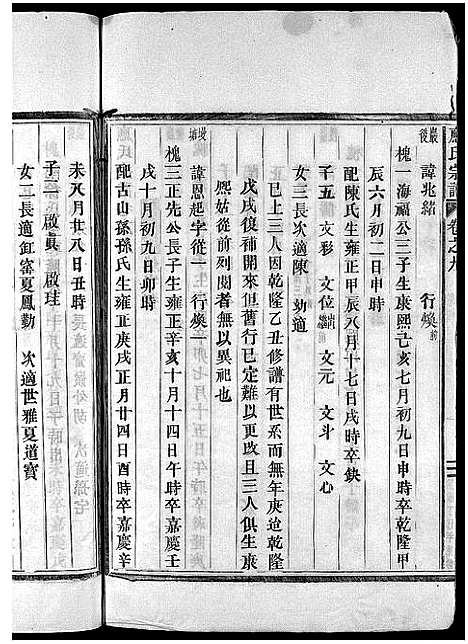 氏宗譜 卷之九
巖後 諱兆銘 行煥前
槐一海福公三子生康熙己亥七月初九日申時卒乾隆甲
辰六月初二日申時
配陳氏生雍正甲辰八月十七日戌時卒缺
子五 文彩 文位出繼 文元 文斗 文心
女三長次適陳 幼適
已上三人因乾隆乙丑修譜有世系而無年庚迨乾隆
戊戌復補開來但舊行已定難以更改且三人俱生康
熙姑從前列閱者無以異視也
坡塘 諱恩起字從一 行煥一
槐三正先公長子生雍正辛亥十月十四日午時卒嘉慶壬
戌十月初九日卯時
配古山孫孫氏生雍正庚戌正月廿四日酉時卒嘉慶辛
未八月廿八日丑時
子二 啟真 啟珪
女二長適缸窰夏鳳勤 次適世雅夏道寶